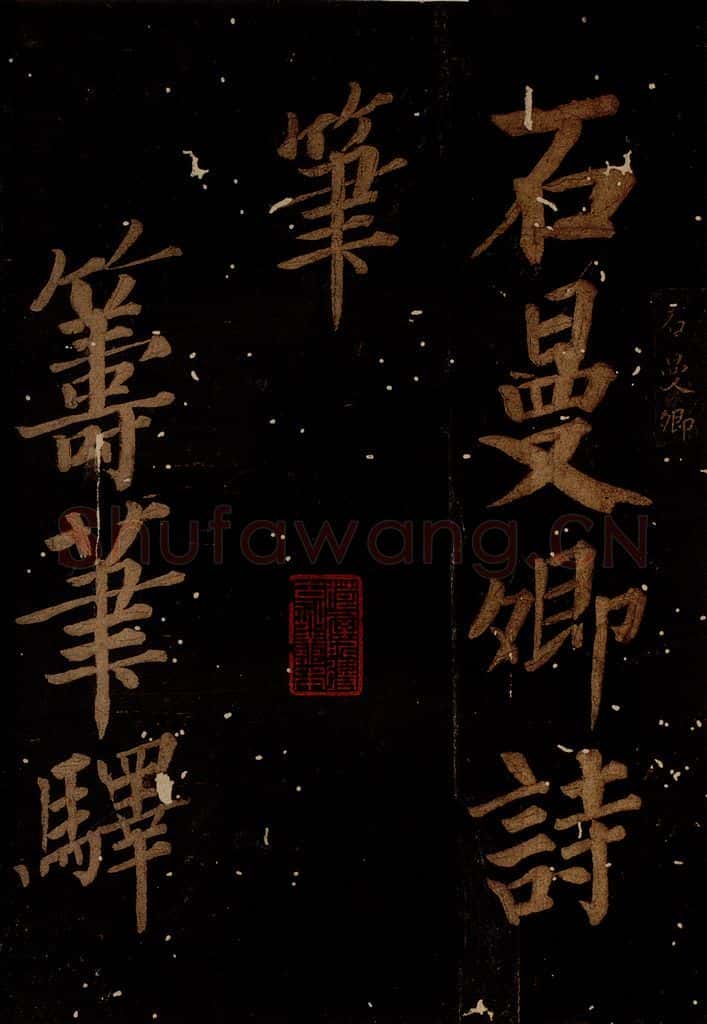 石曼卿詩
筆
籌筆驛
石曼卿
Shufawang.CN